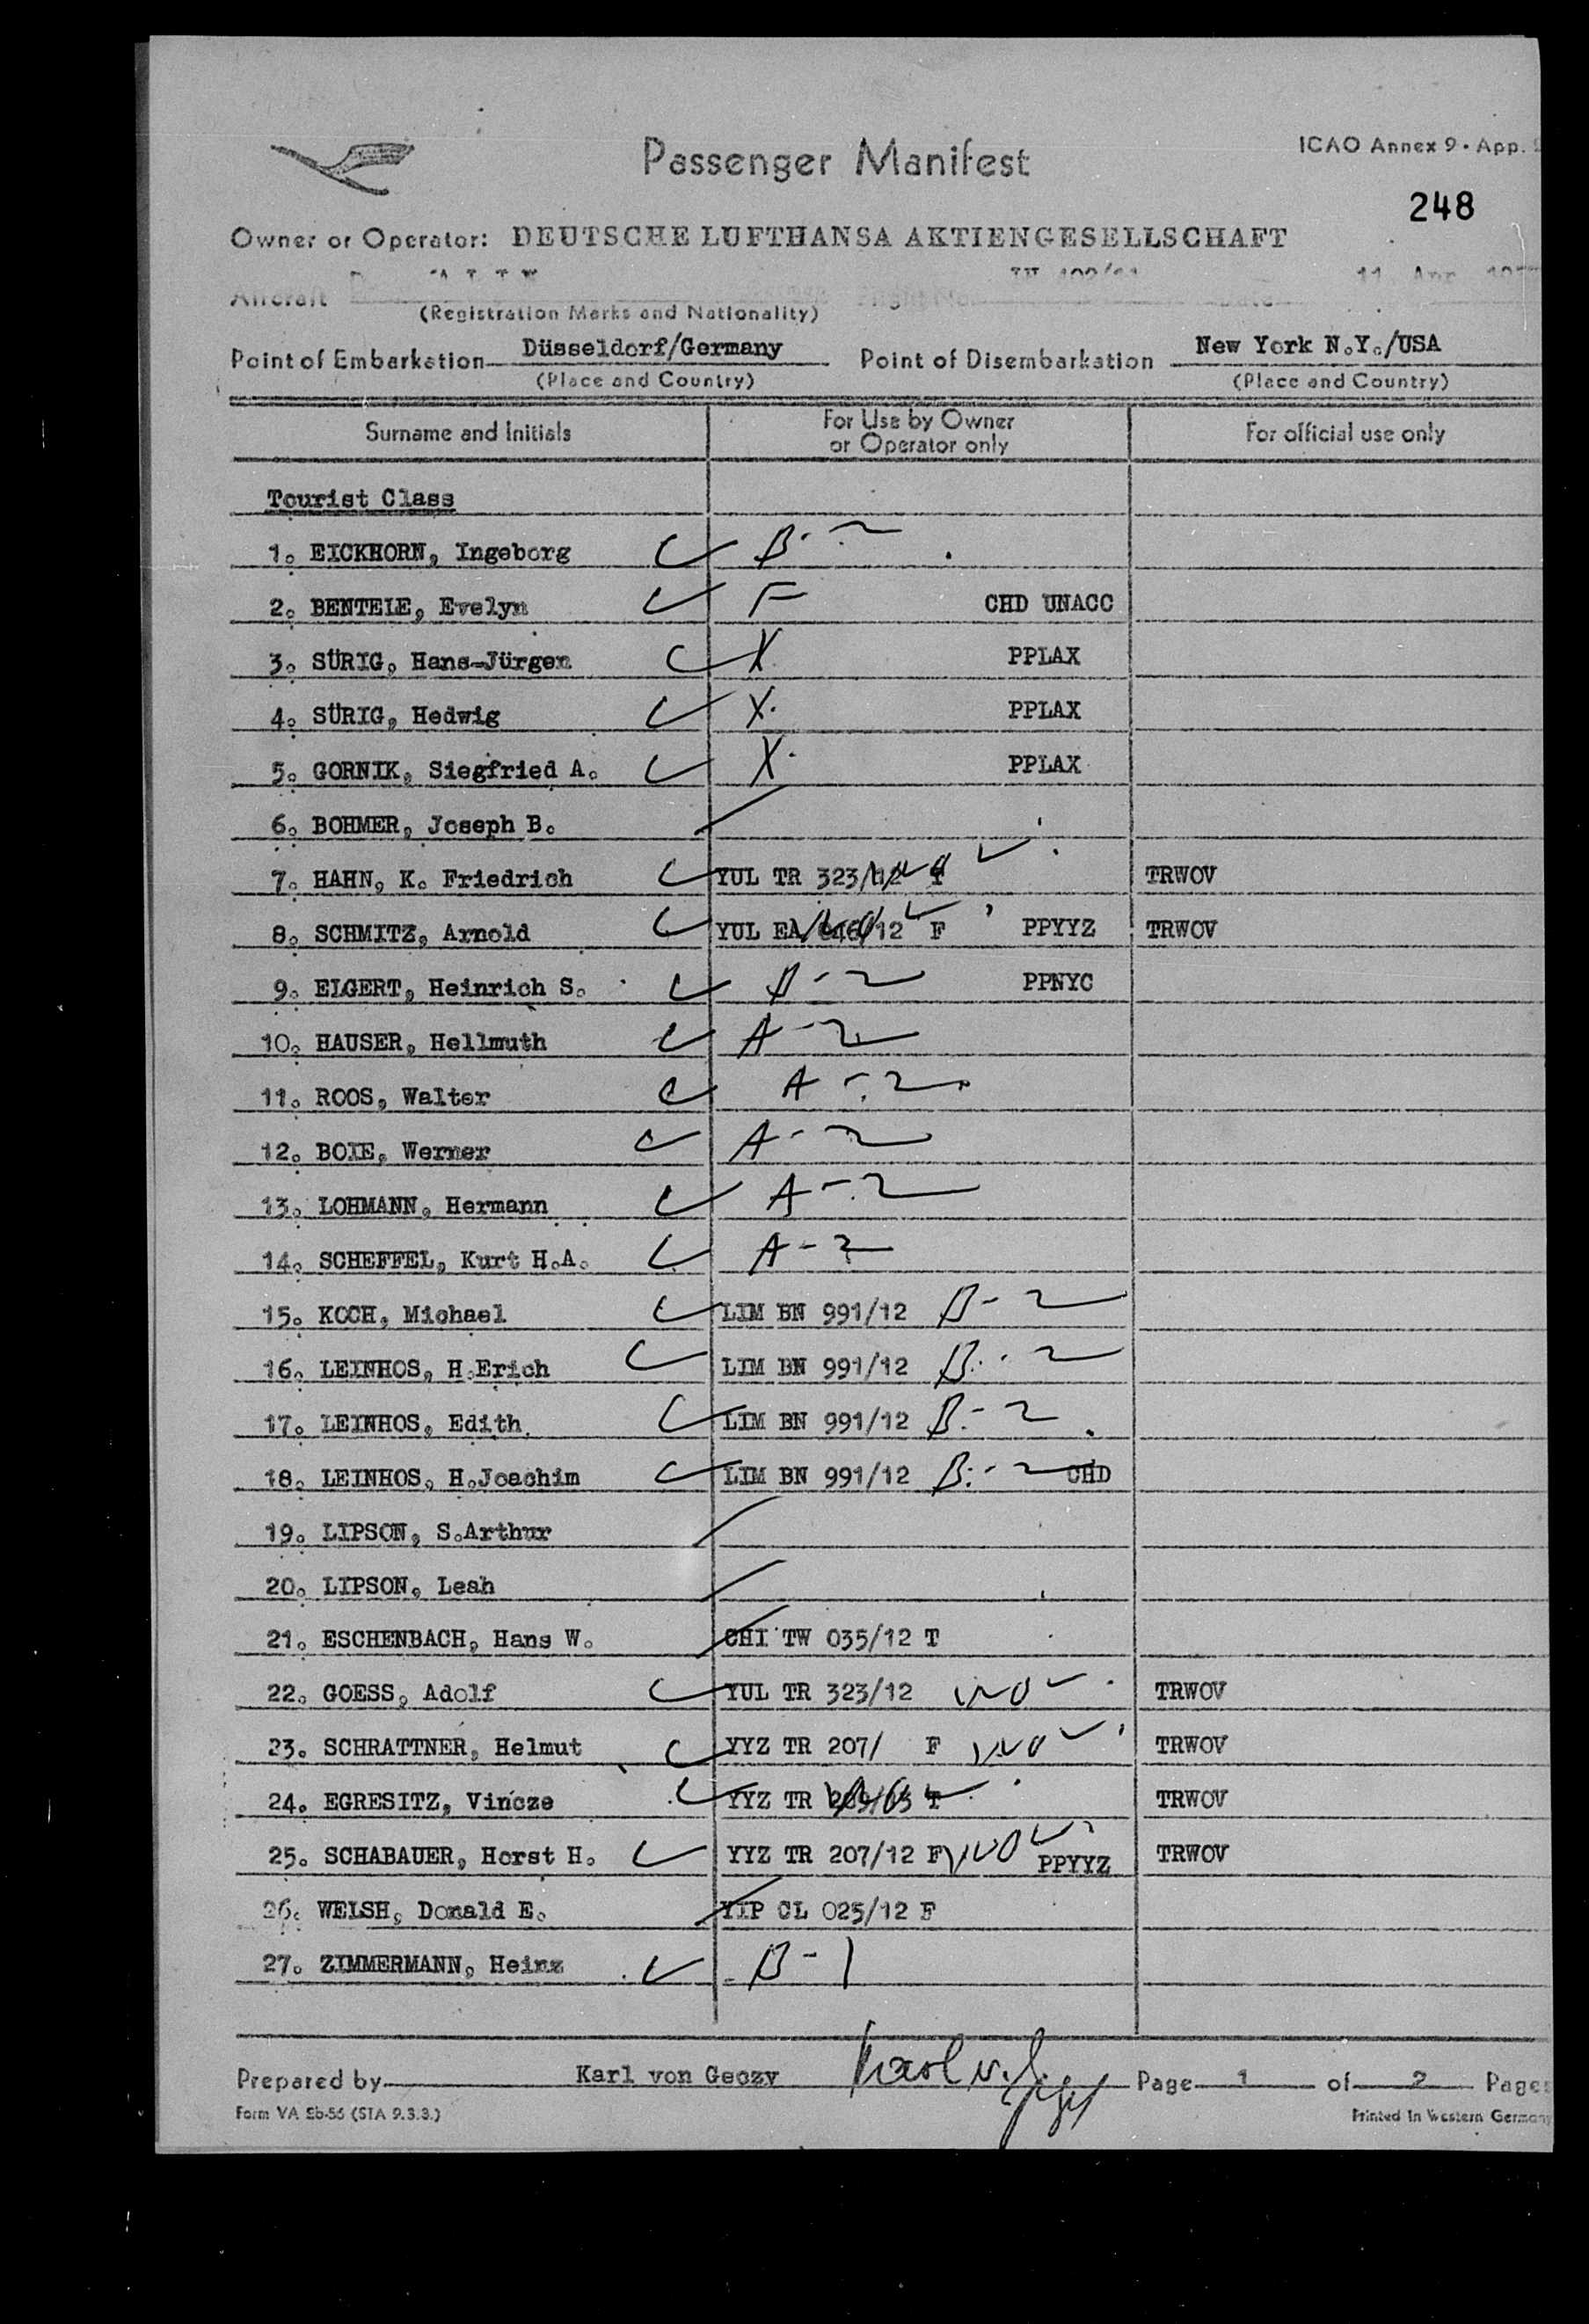 Passenger Manifest
ICAO Annex 9 · App.
248
Owner or Operator: DEUTSCHE LUFTHANSA AKTIENGESELLSCHAFT
Aircraft
11. Apr.
(Registration Marks and Nationality)
Point of Embarkation Düsseldorf/Germany Point of Disembarkation New York N.Y./USA
(Place and Country) (Place and Country)
Surname and Initials For Use by Owner or Operator only For official use only
Tourist Class
1. EICKHORN, Ingeborg B-2
2. BENTEIE, Evelyn F CHD UNACC
3. SÜRIG, Hans-Jürgen X PPLAX
4. SÜRIG, Hedwig X. PPLAX
5. GORNIK, Siegfried A. X. PPLAX
6. BOHMER, Joseph B.
7. HAHN, K. Friedrich YUL TR 323/12 T TRWOV
8. SCHMITZ, Arnold YUL EA /12 F PPYYZ TRWOV
9. EIGERT, Heinrich S. B-2 PPNYC
10. HAUSER, Hellmuth A-2
11. ROOS, Walter A-2
12. BOIE, Werner A-2
13. LOHMANN, Hermann A-2
14. SCHEFFEL, Kurt H.A. A-2
15. KOCH, Michael LIM BN 991/12 B-2
16. LEINHOS, H.Erich LIM BN 991/12 B-2
17. LEINHOS, Edith LIM BN 991/12 B-2
18. LEINHOS, H.Joachim LIM BN 991/12 B-2 CHD
19. LIPSON, S.Arthur
20. LIPSON, Leah
21. ESCHENBACH, Hans W. CHI TW 035/12 T
22. GOESS, Adolf YUL TR 323/12 WOV TRWOV
23. SCHRATTNER, Helmut YYZ TR 207/ F WOV TRWOV
24. EGRESITZ, Vincze YYZ TR T TRWOV
25. SCHABAUER, Horst H. YYZ TR 207/12 F WOV PPYYZ TRWOV
26. WELSH, Donald E. YIP CL 025/12 F
27. ZIMMERMANN, Heinz B-1
Prepared by Karl von Geczy Page 1 of 2 Pages
Form VA Sb-56 (STA 9.3.3.) Printed in Western Germany